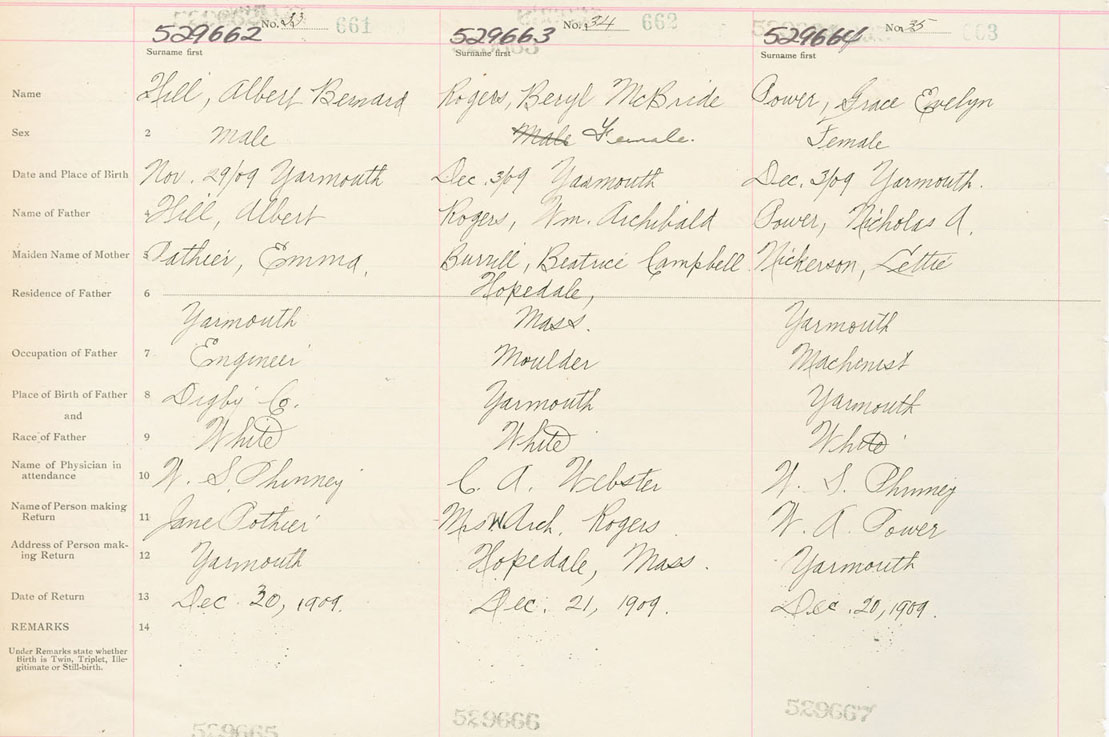 No. 33 661 No. 34 662 No. 35 663
529662 529663 529664
Surname first Surname first Surname first
Name Hill, Albert Bernard Rogers, Beryl McBride Power, Grace Evelyn
Sex 2 Male Male Female. Female
Date and Place of Birth Nov. 29/09 Yarmouth Dec. 3/09 Yarmouth Dec. 3/09 Yarmouth.
Name of Father Hill, Albert Rogers, Wm. Archibald Power, Nicholas A.
Maiden Name of Mother 5 Pothier, Emma. Burrill, Beatrice Campbell Nickerson, Lettie
Residence of Father 6 Hopedale,
Yarmouth Mass. Yarmouth
Occupation of Father 7 Engineer Moulder Machinist
Place of Birth of Father 8 Digby Co. Yarmouth Yarmouth
and
Race of Father 9 White White White
Name of Physician in
attendance 10 W. S. Phinney C. A. Webster W. S. Phinney
Name of Person making
Return 11 Jane Pothier Mrs W Arch. Rogers N. A. Power
Address of Person mak-
ing Return 12 Yarmouth Hopedale, Mass. Yarmouth
Date of Return 13 Dec. 20, 1909. Dec. 21, 1909. Dec. 20, 1909.
REMARKS 14
Under Remarks state whether
Birth is Twin, Triplet, Ille-
gitimate or Still-birth.
529665 529666 529667